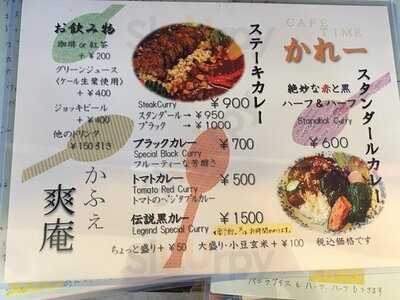 お飲み物
珈琲 or 紅茶
+ ¥200
グリーンジュース
(ケール生葉使用)
+ ¥400
ジョッキビール
+ ¥400
他のドリンク
¥150引き
かふぇ
爽庵
ステーキカレー
Steak Curry ¥900
スタンダール → ¥950
ブラック → ¥1000
ブラックカレー ¥700
Special Black Curry
フルーティーな芳醇さ
トマトカレー ¥500
Tomato Red Curry
トマトのベジタブルカレー
伝説黒カレー ¥1500
Legend Special Curry
お時間かかります。
ちょっと盛り + ¥50 大盛り・小豆玄米 + ¥100 税込価格です
CAFE
TIME
かれー
絶妙な赤と黒
ハーフ&ハーフ
Standhal Curry
¥600
スタンダールカレー